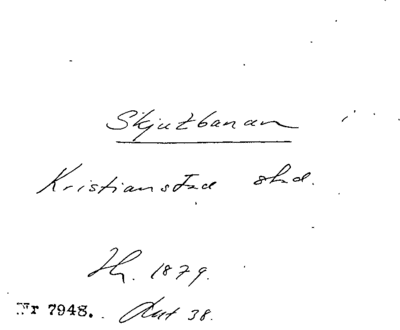 Skjutbanan i
Kristianstad stad.
Hr. 1879.
Nr 7948. Aut 38.